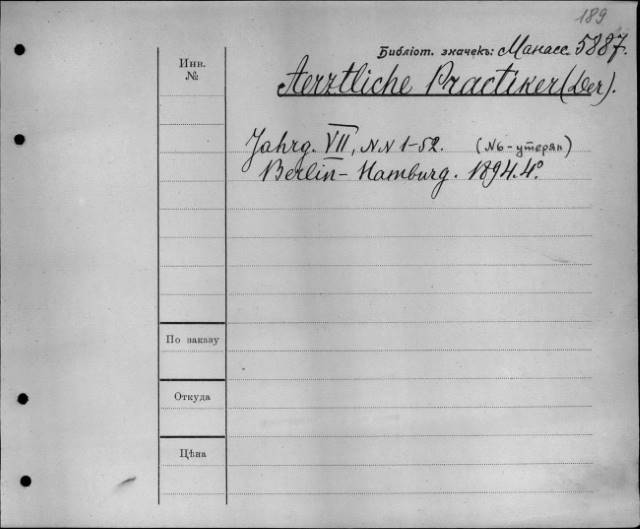 189
Библіот. значекъ: Манасс. 5887.
Инв.
№
Aerztliche Practiker (Der).
Jahrg. VII, NN 1-52. (N6-утерян)
Berlin-Hamburg. 1894. 4°
По заказу
Откуда
Цѣна